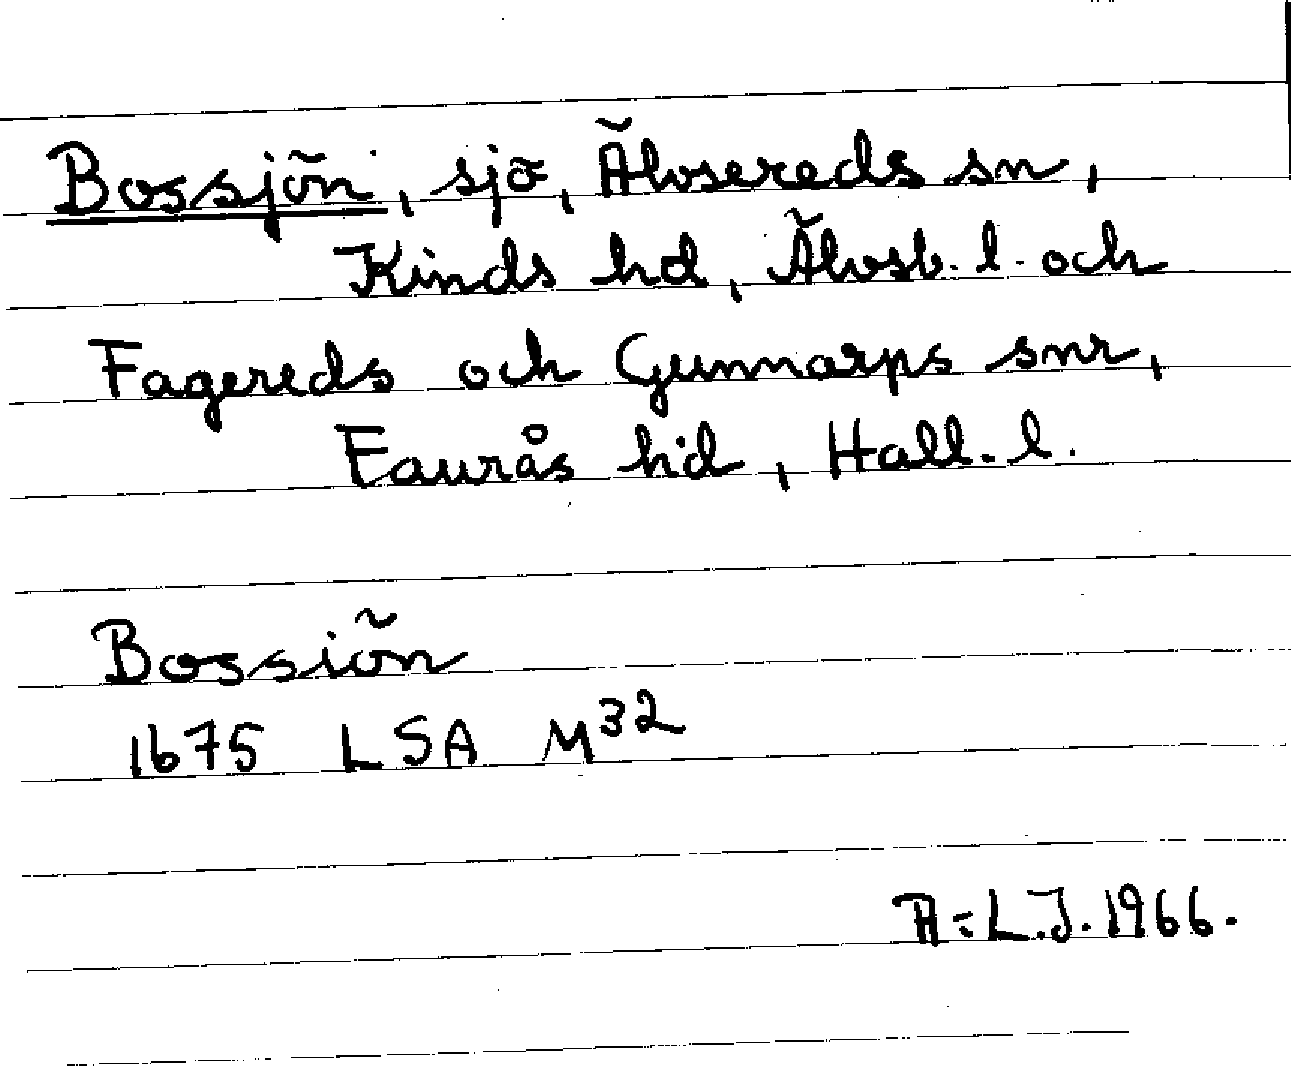 Bossjön, sjö, Älvsereds sn,
Kinds hd, Älvsb. l. och
Fagereds och Gunnarps snr,
Faurås hd, Hall. l.
Bossiön
1675 LSA M32
A-L.J. 1966.